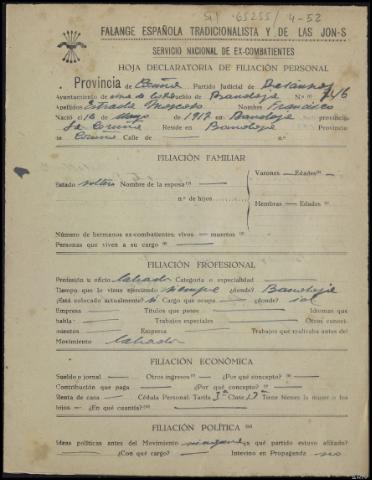 65255/4-52
FALANGE ESPAÑOLA TRADICIONALISTA Y DE LAS JON-S
SERVICIO NACIONAL DE EX-COMBATIENTES
HOJA DECLARATORIA DE FILIACIÓN PERSONAL
Provincia de Coruña Partido Judicial de
Ayuntamiento de de Nº
Apellidos Estrada Nombre Francisco
Nació el 16 de Mayo de 1917 en provincia
La Coruña Reside en Provincia
Coruña Calle de n.º
FILIACIÓN FAMILIAR
Varones — Edades
Estado soltero Nombre de la esposa
n.º de hijos
Hembras — Edades
Número de hermanos ex-combatientes, vivos — muertos
Personas que viven a su cargo
FILIACIÓN PROFESIONAL
Profesión u oficio labrador Categoría o especialidad
Tiempo que la viene ejerciendo siempre ¿dónde?
¿Está colocado actualmente? si Cargo que ocupa ¿dónde?
Empresa Títulos que posee Idiomas que
habla Trabajos especiales Otros conoci-
mientos Empresa Trabajos que realizaba antes del
Movimiento labrador
FILIACIÓN ECONÓMICA
Sueldo o jornal Otros ingresos ¿Por qué concepto?
Contribución que paga ¿Por qué concepto?
Renta de casa Cédula Personal: Tarifa 3ª Clase 13 Tiene bienes la mujer o los
hijos — ¿En qué cuantía?
FILIACIÓN POLÍTICA
Ideas políticas antes del Movimiento ninguna ¿a qué partido estuvo afiliado?
¿Con qué cargo? Intervino en Propaganda no